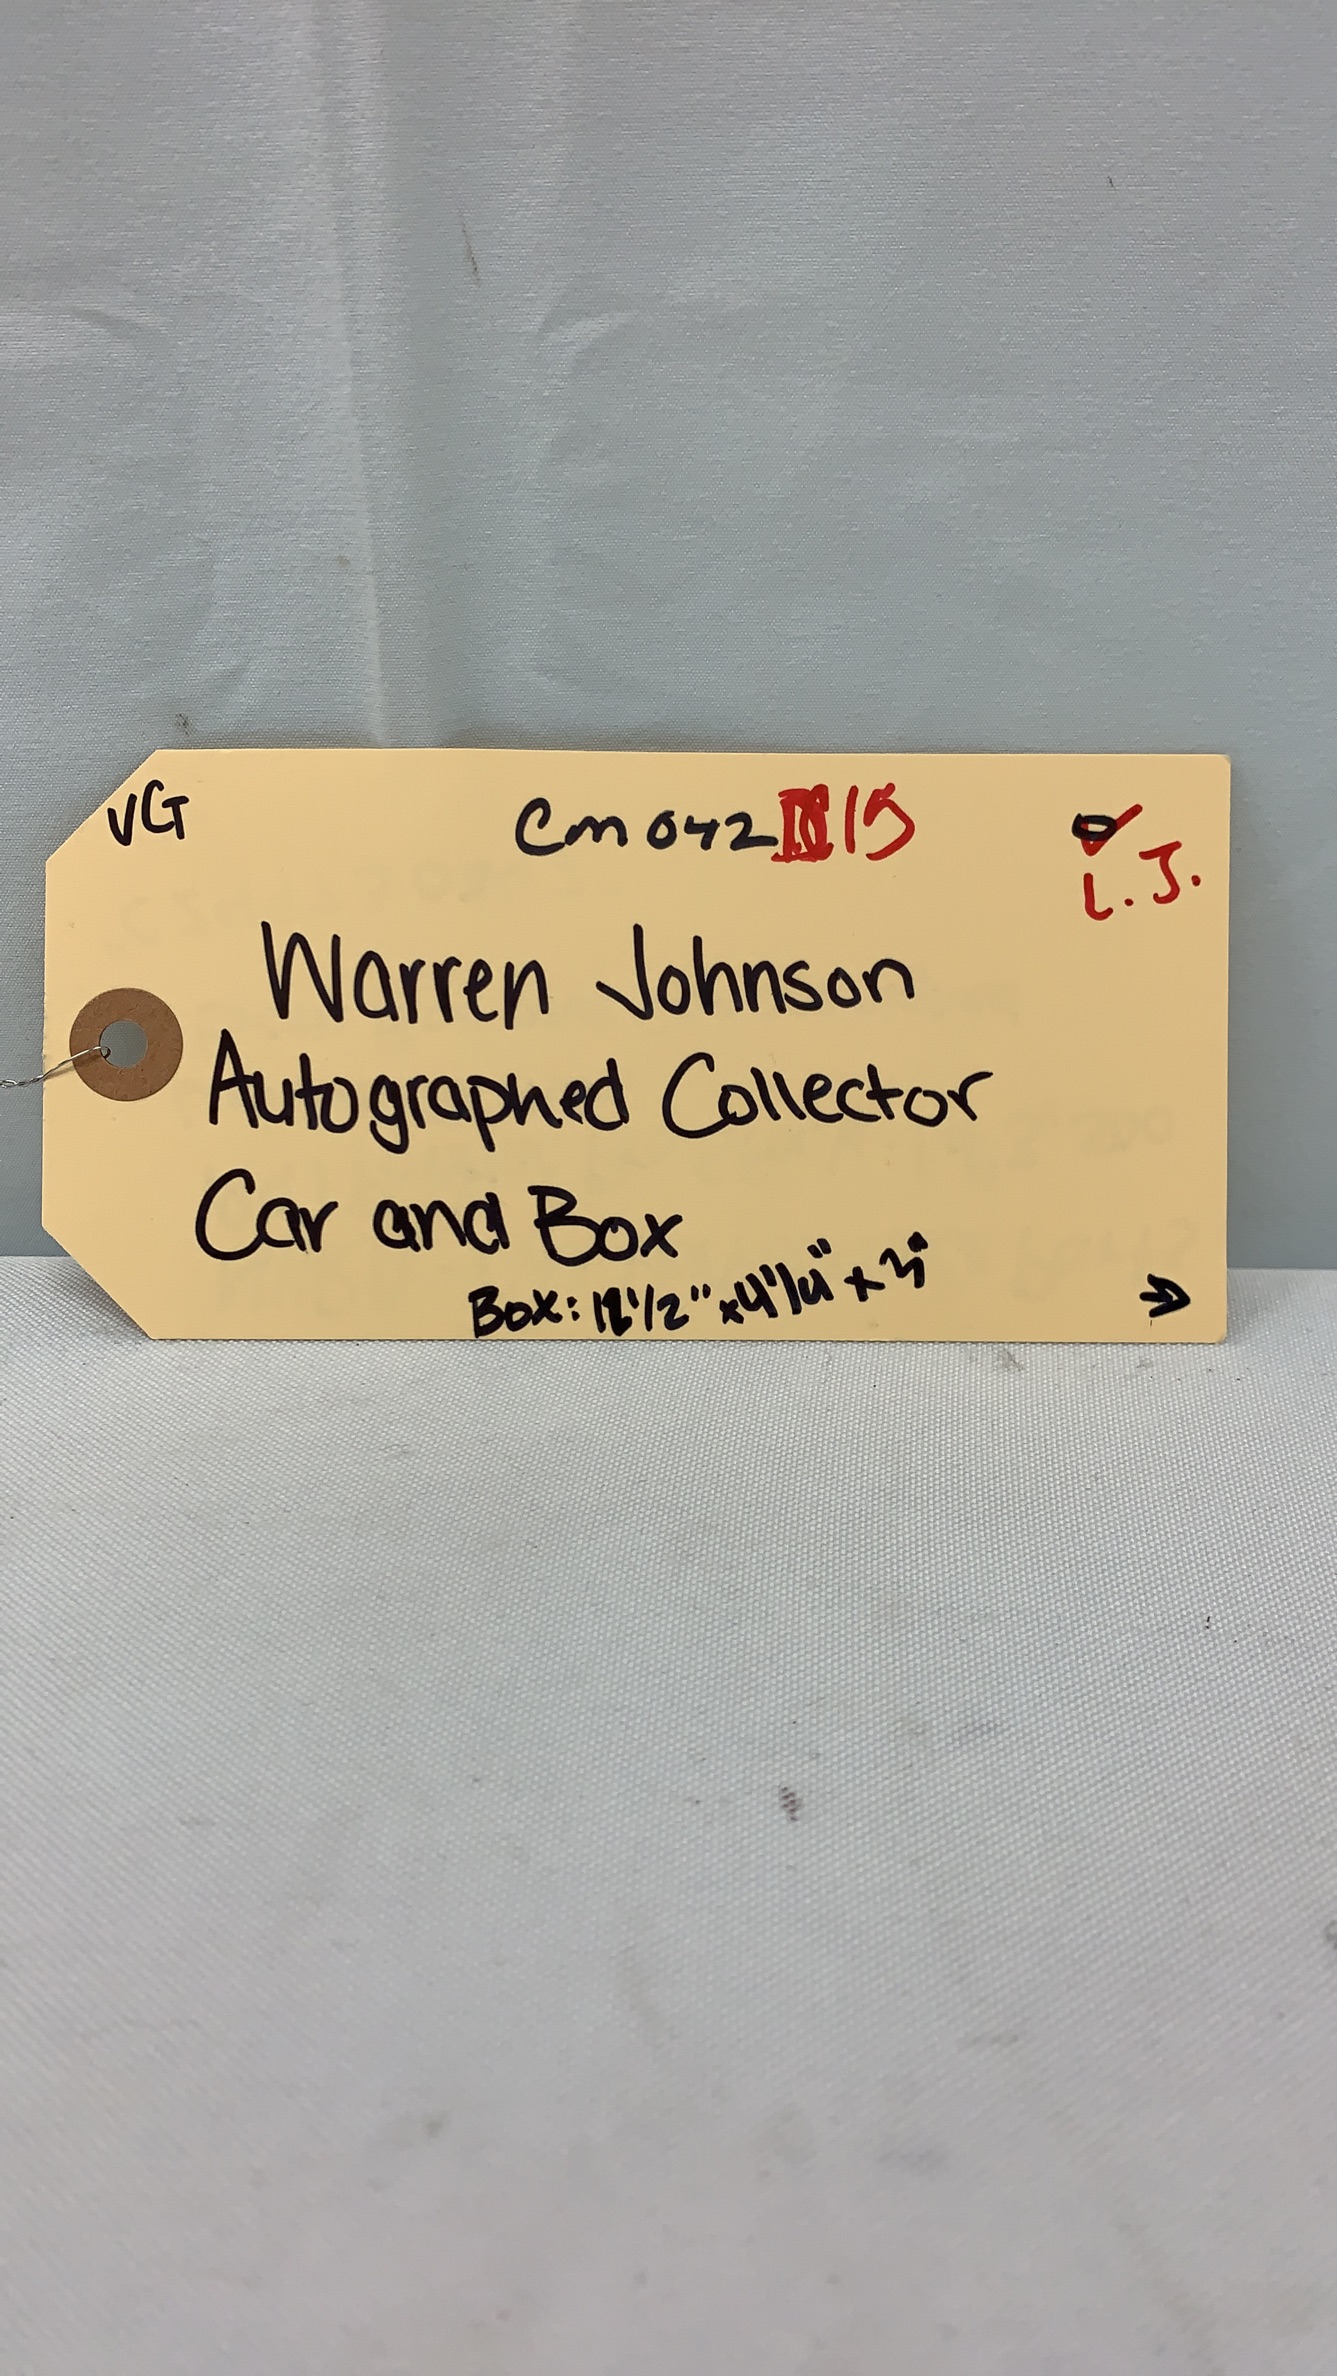 VG
Cm04215
L.J.
Warren Johnson
Autographed Collector
Car and Box
Box: 12 1/2" x 4 1/4" x 3"